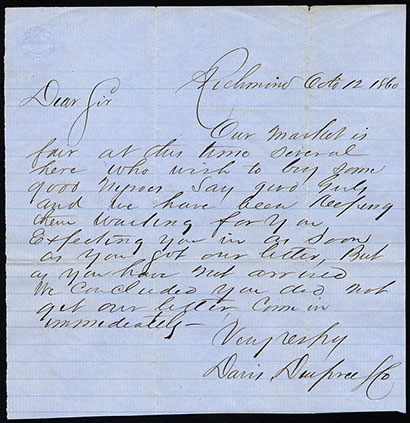 Richmond Octo 12 1860
Dear Sir
Our market is
fair at this time several
here who wish to buy some
good Negroes Say good Girls
and we have been keeping
them waiting for you
Expecting you in as soon
as you got our letter, But
as you have not arrived
We concluded you did not
get our letter, Come in
immediately—
Very respy
Davis, Deupree & Co